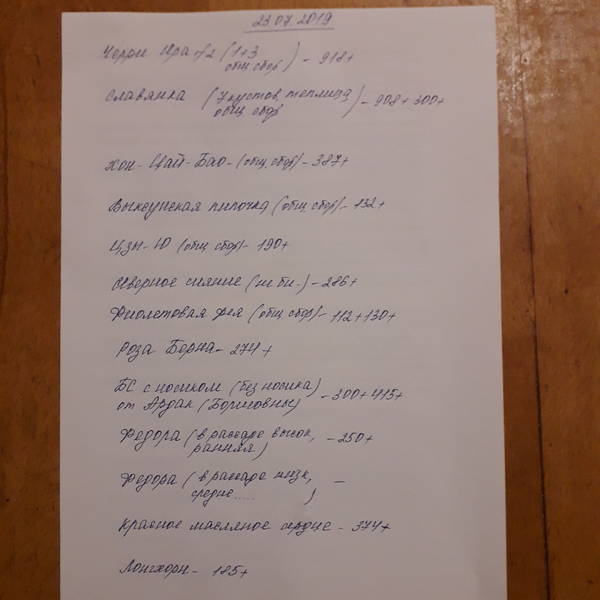 23.07.2019
Черри Ира f2 (1+3
общ. сбор) - 918+
Славянка (7 кустов, теплица,
общ. сбор) - 908+300+
Хон-Цай-Бао- (общ. сбор) - 387+
Выксунская пипочка (общ. сбор) - 132+
Цзы-Ю (общ. сбор) - 190+
Северное сияние (не би-) - 286+
Фиолетовая фея (общ. сбор) - 112+130+
Роза Берна - 274+
БС с носиком (без носика)
от Ардак (Борисовны) - 300+415+
Федора (в рассаде высок,
ранняя) - 250+
Федора (в рассаде низк,
средне.....) -
Красное масляное сердце - 374+
Лонгхорн - 185+